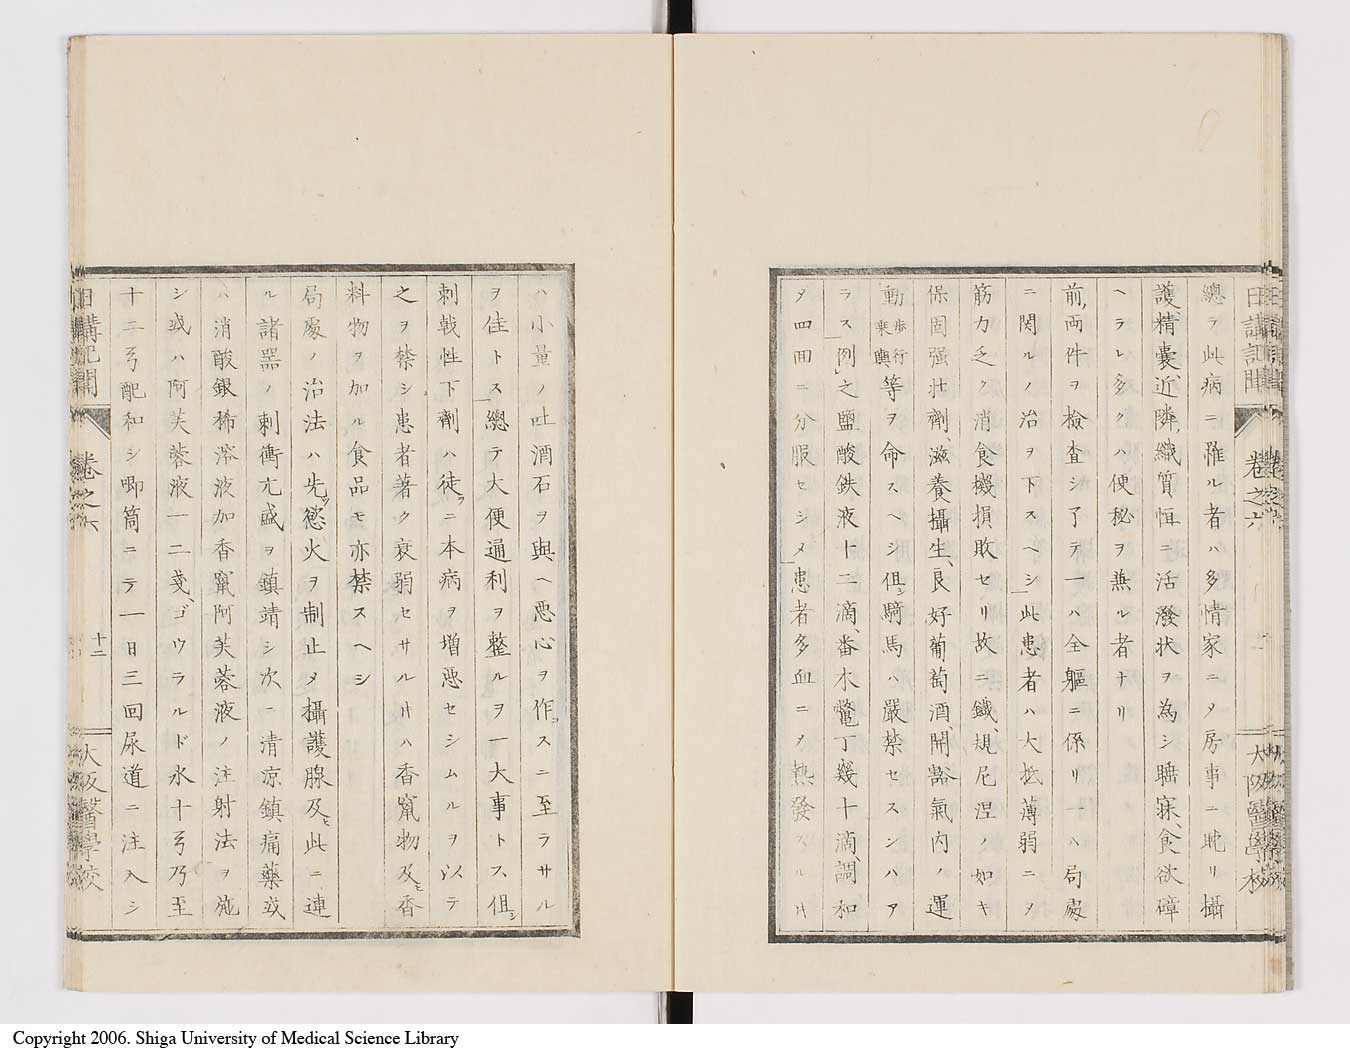 日講記聞 卷之六 大阪醫學校
總テ此病ニ罹ル者ハ多情家ニメ房事ニ耽リ攝
護、精囊、近隣、織質恒ニ活潑状ヲ為シ聴寐、食欲碍
ヘラレ多クハ便秘ヲ兼ル者ナリ
前両件ヲ檢査シ了テ一ハ全軀ニ係リ一ハ局處
ニ関ルノ治ヲ下スヘシ此患者ハ大抵薄弱ニヲ
筋力乏ク消食機損敗セリ故ニ鐵、規尼涅ノ如キ
保固强壮劑、滋養攝生、良好葡萄酒開豁氣内ノ運
動歩行乗輿等ヲ命スヘシ但シ騎馬ハ嚴禁セスンハア
ラス例之鹽酸鉄液十二滴、番木鼈丁幾十滴、調和
メ四回ニ分服セシメ患者多血ニメ熱發スル片
ハ小量ノ吐酒石ヲ與ヘ悪心ヲ作スニ至ラサル
ヲ佳トス總テ大便通利ヲ整ルヲ一大事トス但シ
刺戟性下劑ハ徒ラニ本病ヲ増悪セシムルヲ以テ
之ヲ禁シ患者著ク衰弱セサル片ハ香竄物及ヒ香
料物ヲ加ル食品モ亦禁スヘシ
局處ノ治法ハ先ツ慾火ヲ制止メ攝護腺及ヒ此ニ連
ル諸器ノ刺衝亢盛ヲ鎮靖シ次ニ清涼鎮痛藥或
ハ消酸銀稀溶液加香竄阿芙蓉液ノ注射法ヲ施
シ或ハ阿芙蓉液一二戔、ゴウラルド水十弓乃至
十二弓配和シ喞筒ニテ一日三回尿道ニ注入シ
日講記聞 卷之六 十二 大阪醫學校
Copyright 2006. Shiga University of Medical Science Library